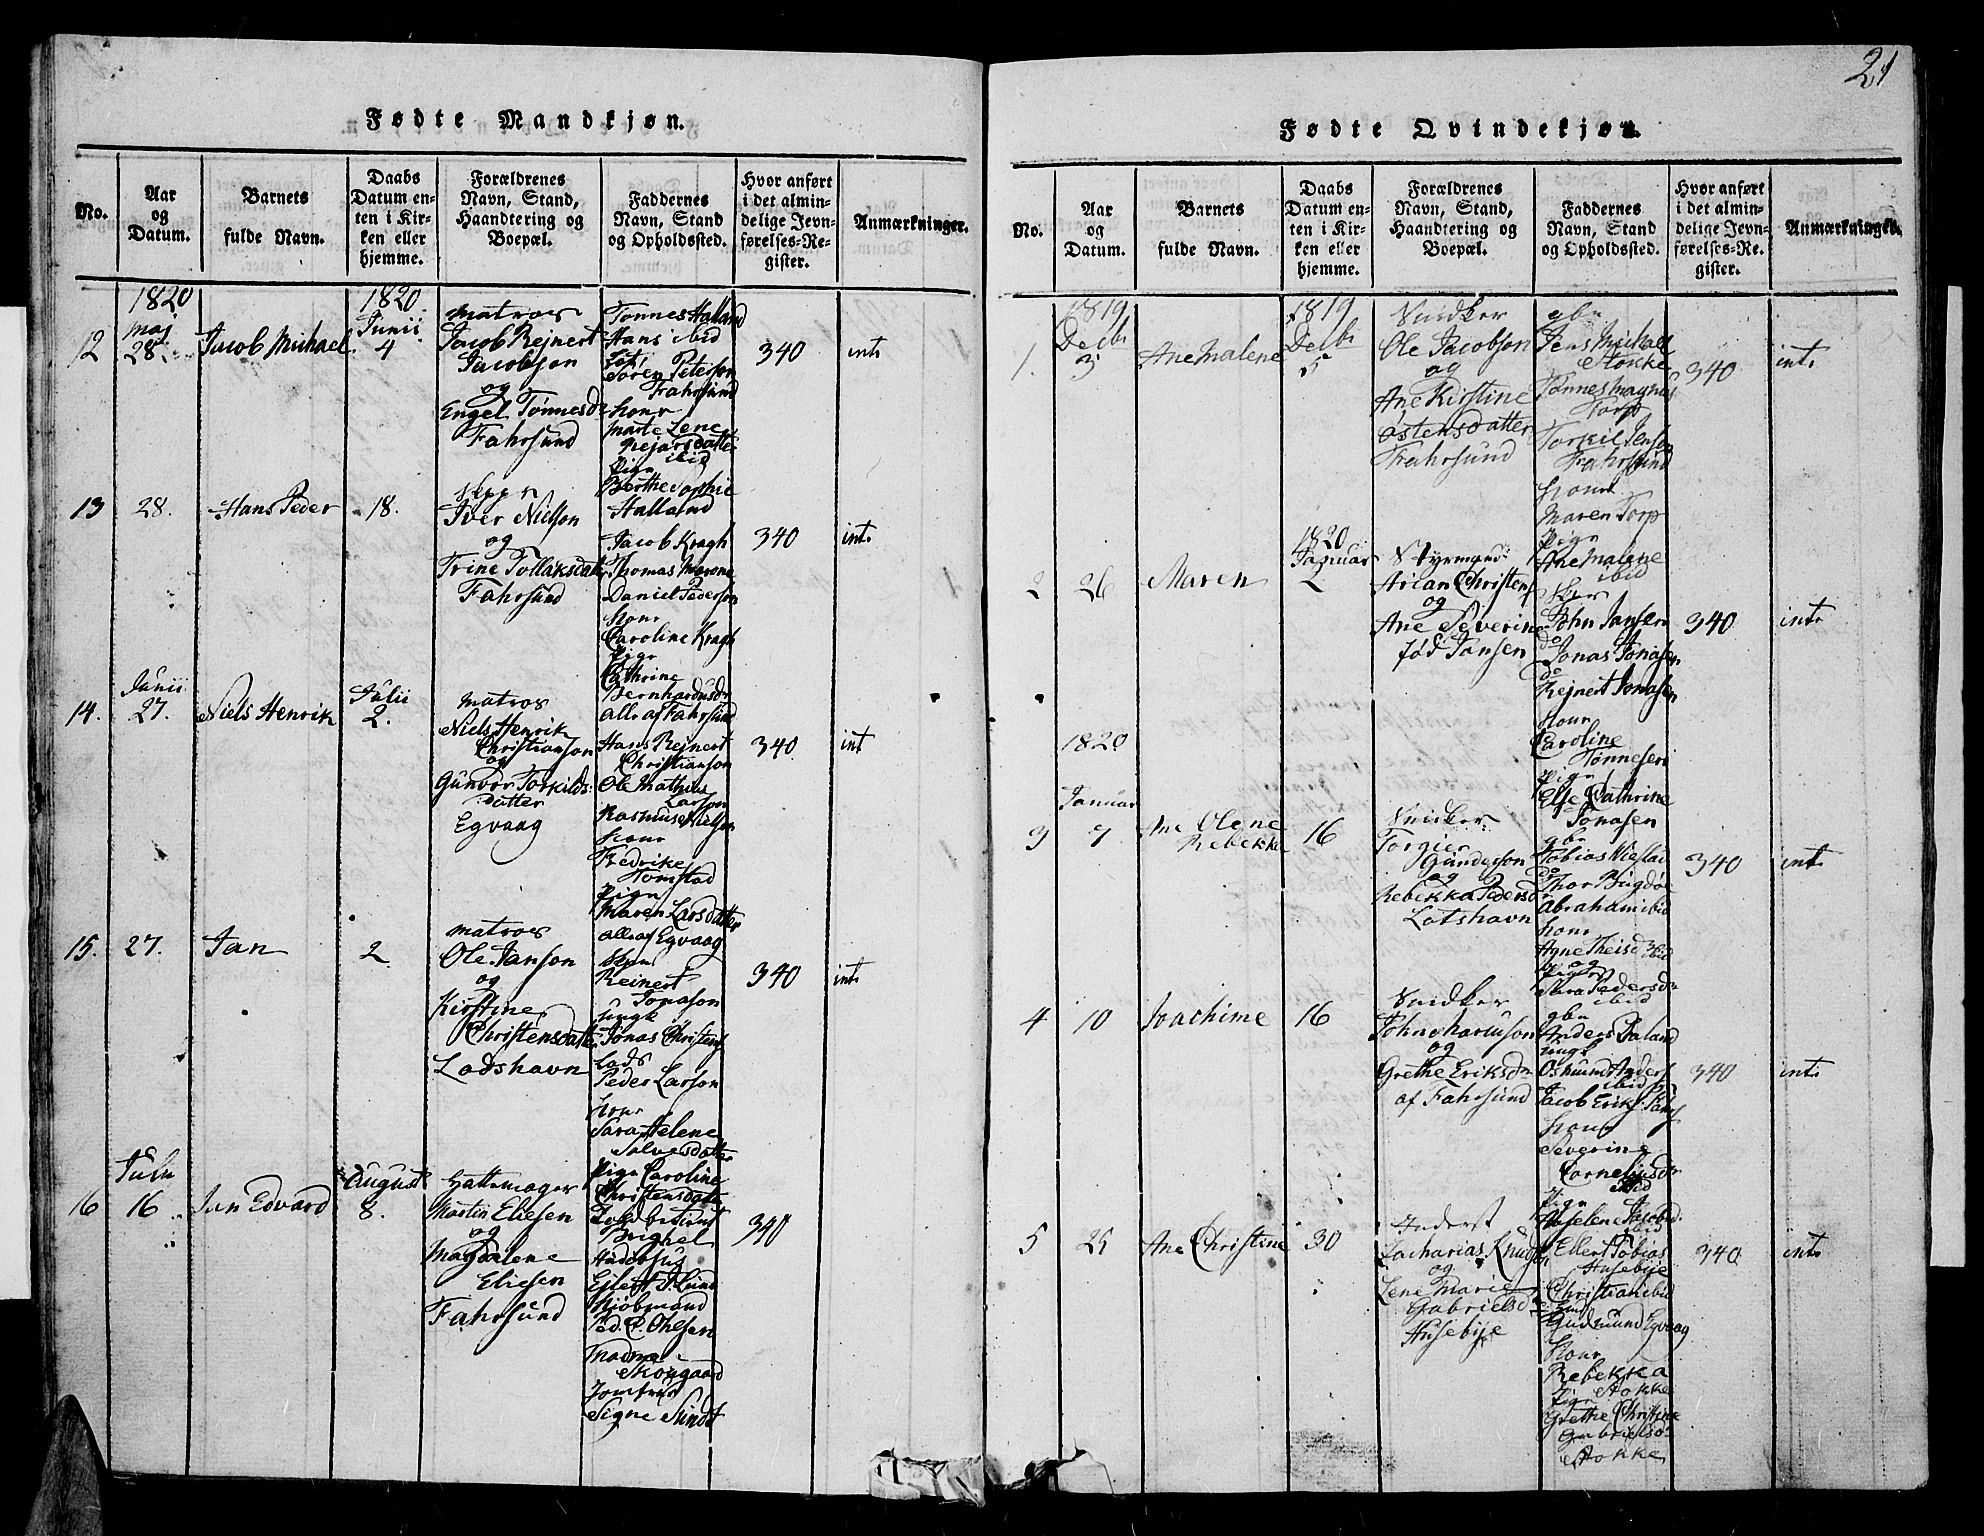 21
Fødte Mandkjøn.
No.
Aar
og
Datum.
Barnets
fulde Navn.
Daabs
Datum en-
ten i Kir-
ken eller
hjemme.
Forældrenes
Navn, Stand,
Haandtering og
Boepæl.
Faddernes
Navn, Stand
og Opholdssted.
Hvor anført
i det almin-
delige Jevn-
førelses-Re-
gister.
Anmærkninger.
12
1820
Maj
28.
Jacob Michael
1820
Junii
4
Matros
Jacob Rejnert
Jacobson
og
Engel Tønnesdr
Fahrsund
Tønnes Halland
Hans ibid
Søren Peterson
Fahrsund
Konr
Marte Lene
Rejarsdatter
ibid
Pigr
Berthe Sophie
Halland
340
int
13
28.
Hans Peder
18.
Skippr
Iver Nielson
og
Trine Tollaksdatter
Fahrsund
Jacob Kragh
Thomas Marone
Daniel Pederson
Konr
Caroline Kragh
Pigr
Cathrine
Bernhardusdr
alle af Fahrsund
340
int
14.
Junii
27.
Niels Henrik
Julii
2.
Matros
Niels Henrik
Christianson
og
Gunvor Torkilds-
datter
Egvaag
Hans Rejnert
Christianson
Ole Mathias
Larson
Rasmus Nielson
Konr
Fredrike
Tomstad
Pigr
Maren Larsdatter
alle af Egvaag
340
int
15.
27.
Jan
2.
Matros
Ole Janson
og
Kirstine
Christensdatter
Lodshavn
Reinert
Jonason
ungk
Jonas Christens
Lods
Peder Larson
Konr
Sara Helene
Salvesdatter
Pigr Caroline
Christensdatter
340
int
16
Julii
16
Jan Edvard
August
8.
Hattemager
Martin Eliesen
og
Magdalene
Eliesen
Fahrsund
Toldbetient
Bughel
Ejlert S. Lund
Kjøbmand
Ped. C. Ohlsen
Madme
Skougaard
Jomfrue
Signe Sundt
340
Fødte Qvindekjøn.
No.
Aar
og
Datum.
Barnets
fulde Navn.
Daabs
Datum en-
ten i Kir-
ken eller
hjemme.
Forældrenes
Navn, Stand,
Haandtering og
Boepæl.
Faddernes
Navn, Stand
og Opholdssted.
Hvor anført
i det almin-
delige Jevn-
førelses-Re-
gister.
Anmærkninger.
1.
1819
Decbr
3
Ane Malene
1819
Decbr
5
Snidker
Ole Jacobson
og
Ane Kirstine
Østensdatter
Fahrsund
gbr
Jens Michael
Stokke
Tønnes Magnus
Torp
Torkil Jensen
Fahrsund
Konr
Maren Torp
Pigr
Ane Malene
ibid
340
int
2
26
Maren
1820
Januar
2
Styrmand
Arian Christens
og
Ane Severine
fød Jansen
Skpr
John Jansen
do
Jonas Jonasen
do
Rejnert Jonasen
Konr
Caroline
Tønnesen
Pigr
Else Cathrine
Jonasen
340
int
3
1820
Januar
7
Ane Olene
Rebekke
16
Snidker
Torgier
Gunderson
og
Rebekka Pedersd
Lotshavn
gbr
Tobias Niestad
do
Thor Bugdøe
Abraham ibid
Konr
Agne Theisd ibid
og
Pigr
Sara Pedersdr
ibid
340
int
4
10
Joachime
16
Snidker
John
og
Grethe Eriksdr
af Fahrsund
gbr
Anders Saland
ungk
Osmund Anders
ibid
Jacob Erik
Konr
Severine
Corneliusdr
ibid
Pigr
Aaselene Jacobsd
ibid
340
int
5
25
Ane Christine
30
Zacharias Knuds
og
Lene Marie
Gabrielsd
Husebye
Ellert Tobias
Husebye
Christian ibid
Gudmund Egvaag
Konr
Rebekka
Stokke
Pigr
Grethe Christine
Gabrielsdr
Stokke
340
int